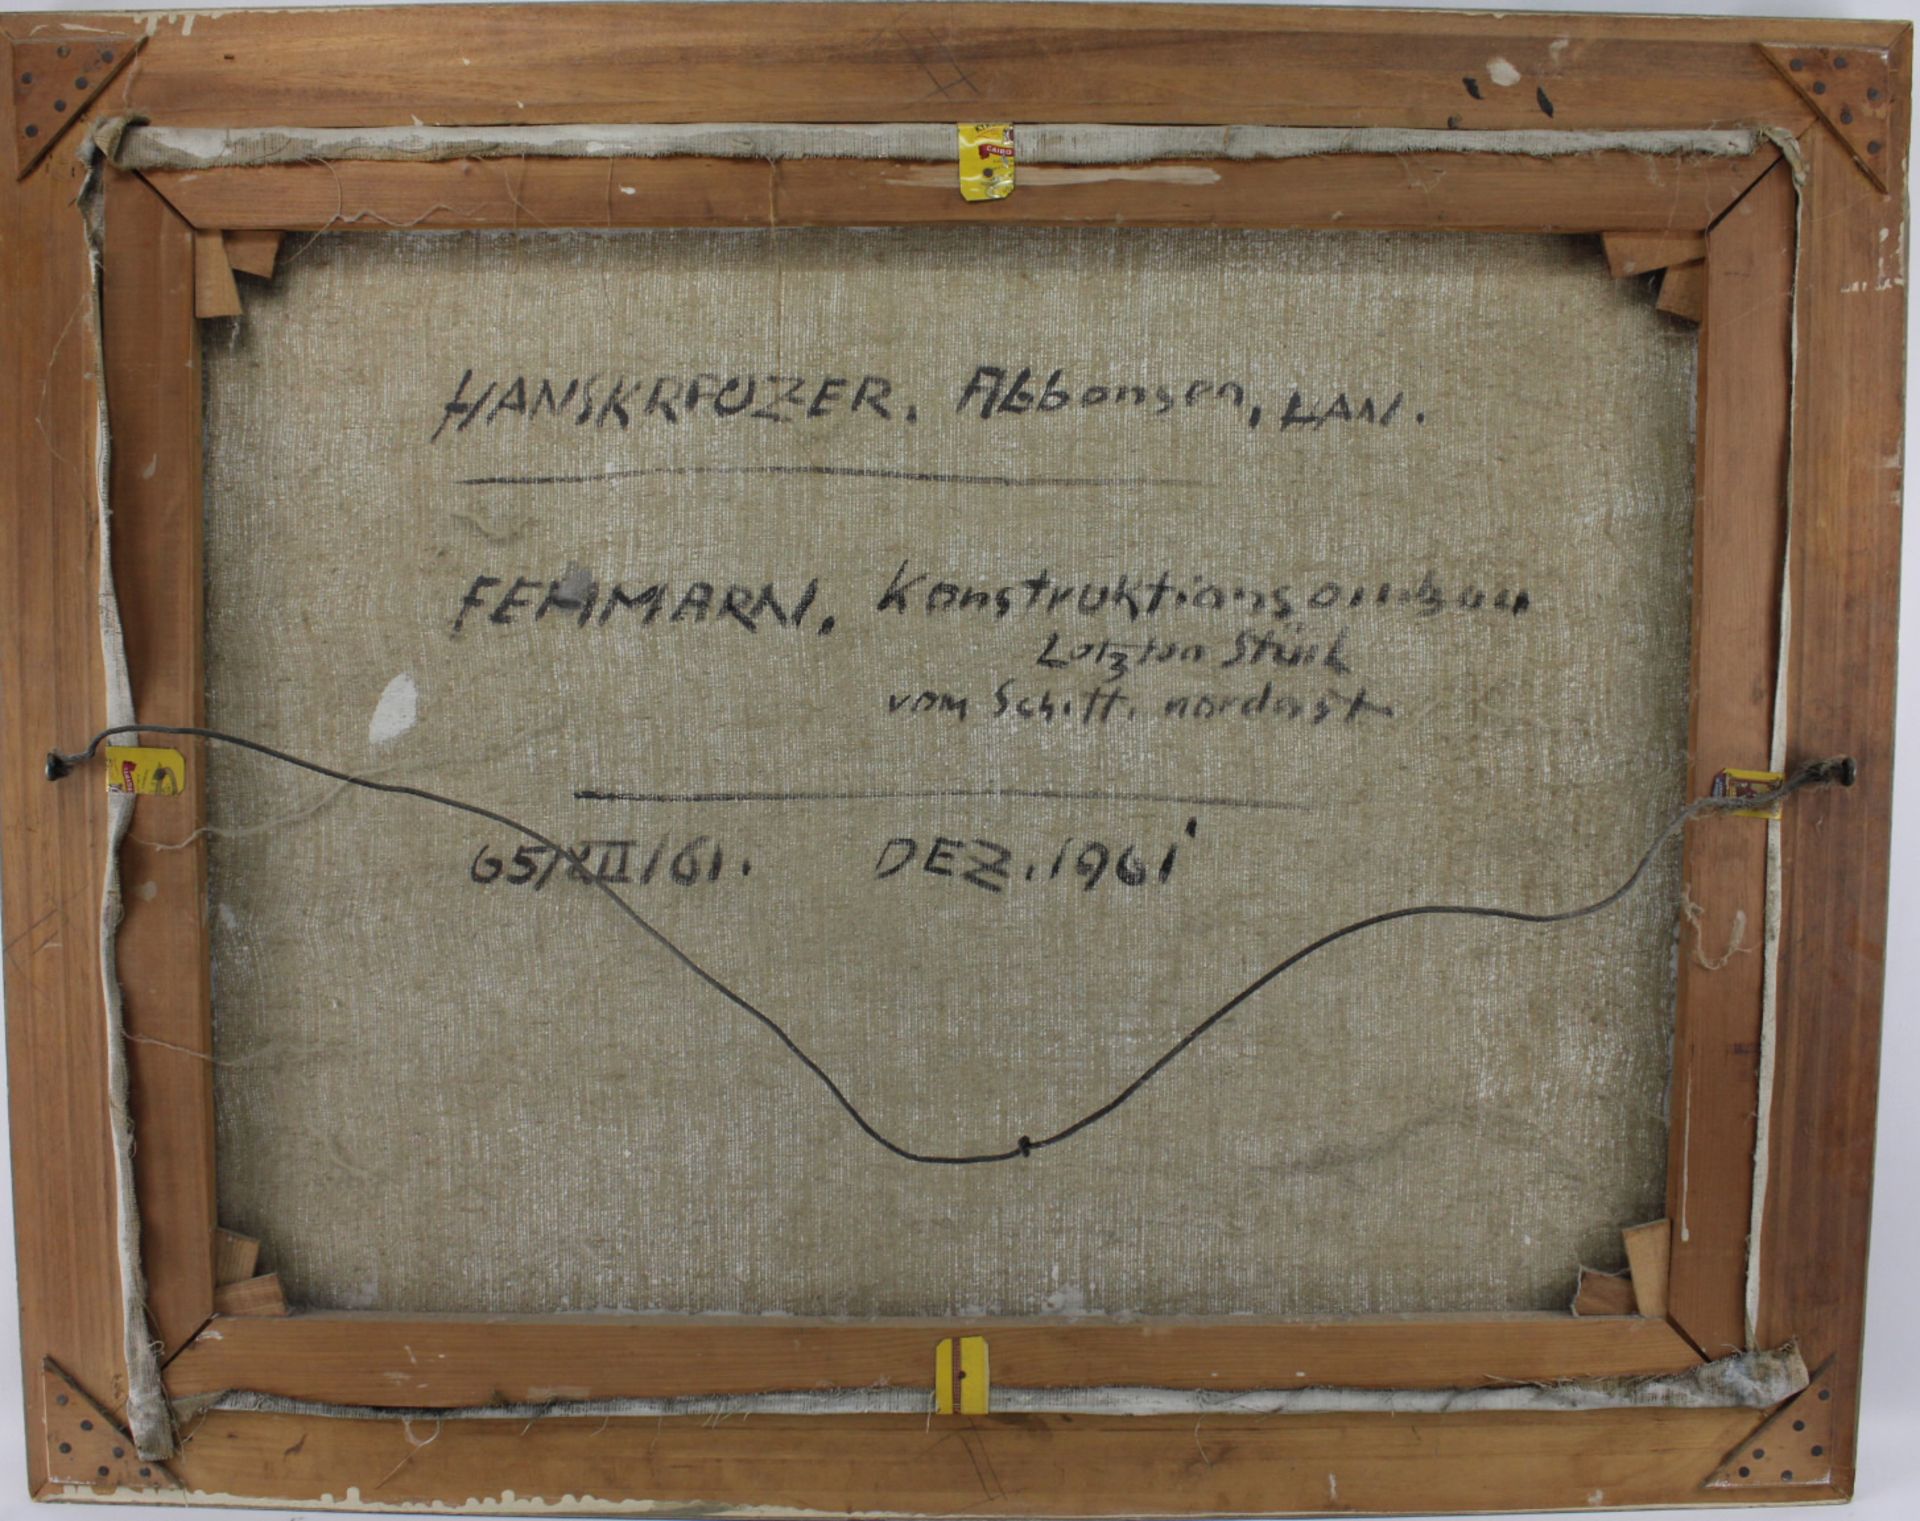 HANSKREUZER. Abbensen, HAN.
FEHMARN. Konstruktionsombau
Letzten Stück
vom Schiff. nordost
65/XII/61. DEZ. 1961
CAIRO